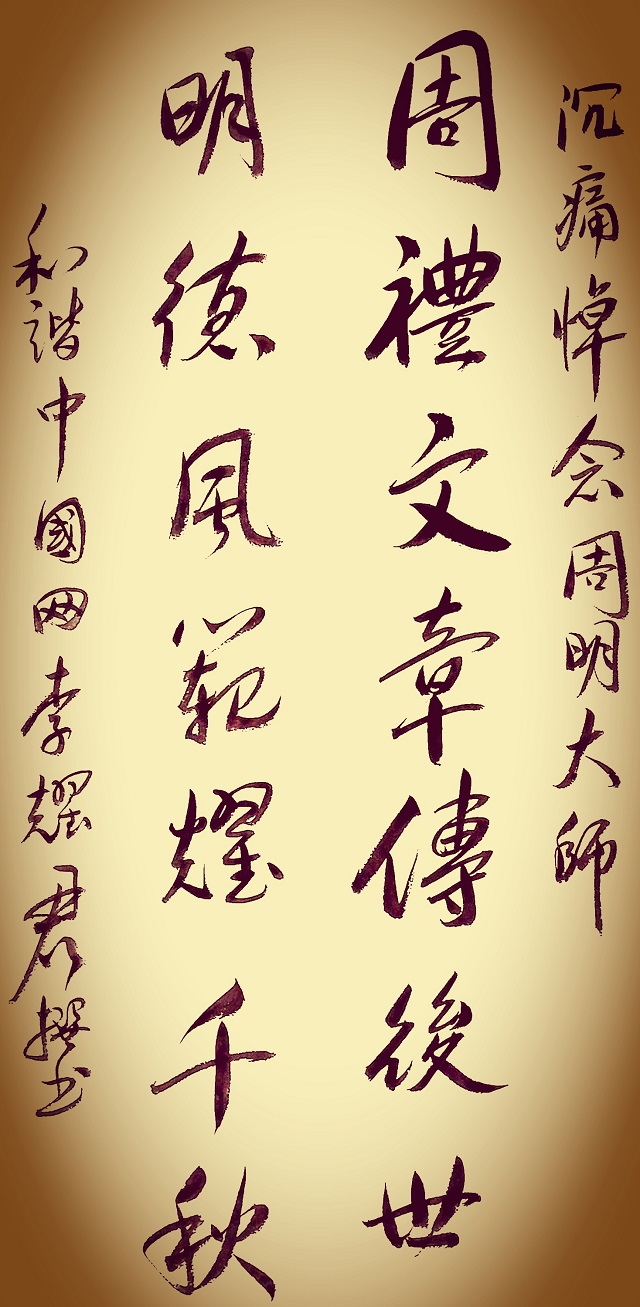 沉痛悼念周明大師
周禮文章傳後世
明德風範耀千秋
和諧中國网李耀君撰书